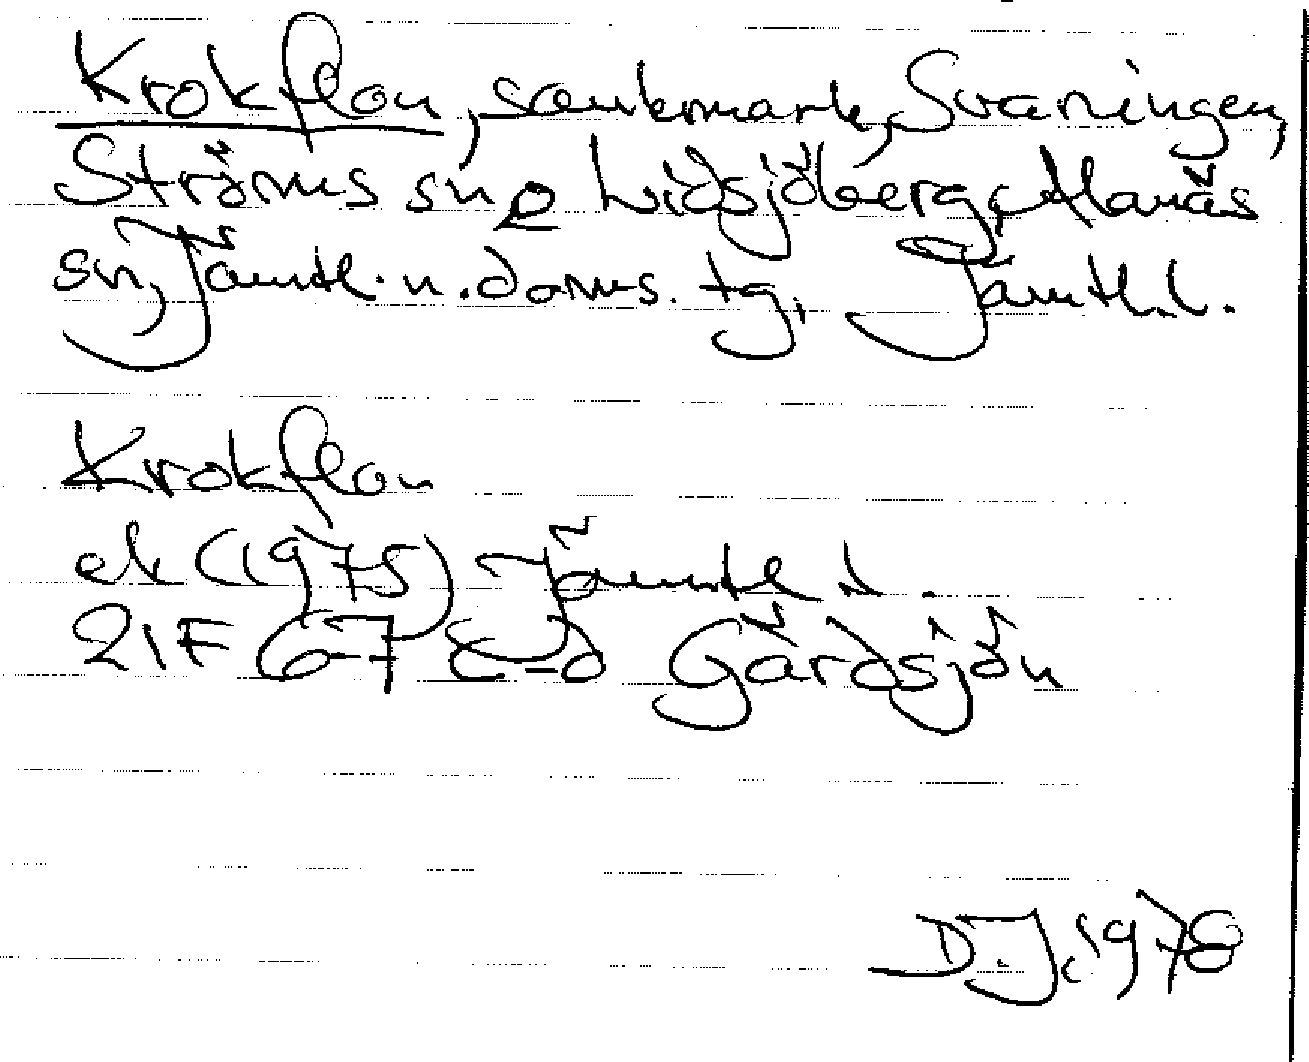 Krokflon, sankmark, Svaningen,
Ströms sn o Lidsjöberg, Alanäs
sn, Jämtl. n. doms. tg, Jämtl. l.
Krokflon
ek (1975) Jämtl l.
21F 6-7 c-d Gårdsjön
D.J. 1978